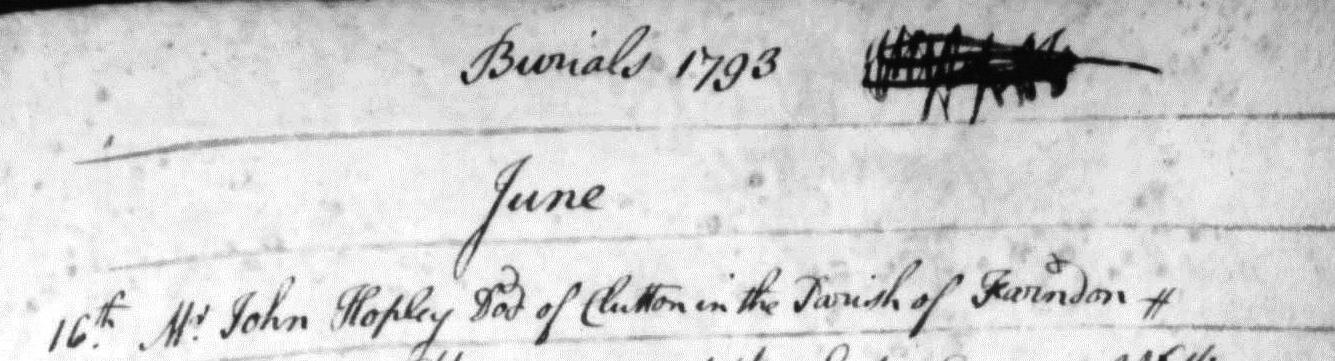 Burials 1793
June
16th. Mr. John Hopley of Clutton in the Parish of Farndon